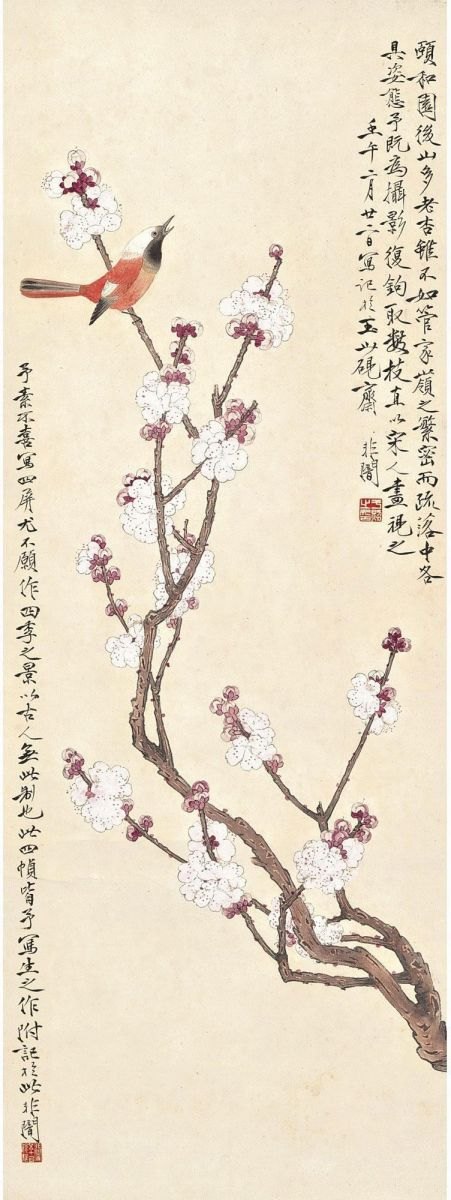 頤和園後山多老杏雖不如管家嶺之繁密而疏落中各
具姿態予既為攝影復鉤取數枝直以宋人畫視之
壬午二月廿二日寫記於玉山硯齋 非闇
予素不喜寫四屏尤不願作四季之景以古人無此制也此四幀皆予寫生之作附記於此非闇